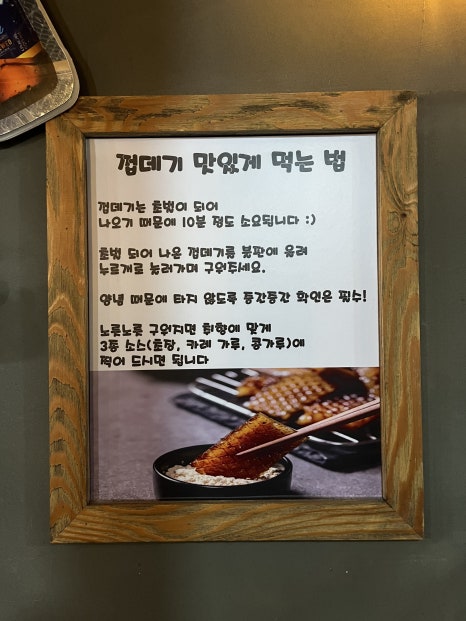 껍데기 맛있게 먹는 법
껍데기는 초벌이 되어
나오기 때문에 10분 정도 소요됩니다 :)
초벌 되어 나온 껍데기를 불판에 올려
누르개로 눌러가며 구워주세요.
양념 때문에 타지 않도록 중간중간 확인은 필수!
노릇노릇 구워지면 취향에 맞게
3종 소스(초장, 카레 가루, 콩가루)에
찍어 드시면 됩니다